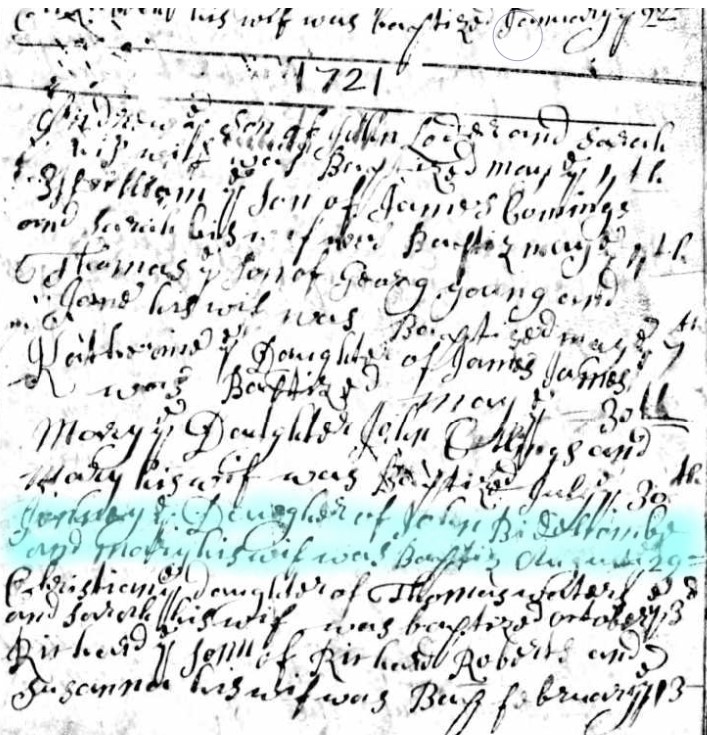 his wif was baptized January ye 22
1721
Andrew ye son of John Loder and Sarah
his wife was Baptized may ye 11th
William ye son of James Comings
and Sarah his wif was Baptiz may ye 11th
Thomas ye son of Georg young and
Jane his wif was Baptized may ye 7th
Katherine ye Daughter of James James
was Baptized may ye 30th
Mary ye Daughter John and
Mary his wif was Baptized July ye 30th
ye Daughter of John Bidelcombe
and mary his wif was Baptiz August 29
Christian ye Daughter of Thomas wolters
and Sarah his wif was baptized october ye 13
Richard ye sonn of Richard Roberts and
Susanna his wif was Bap february ye 13